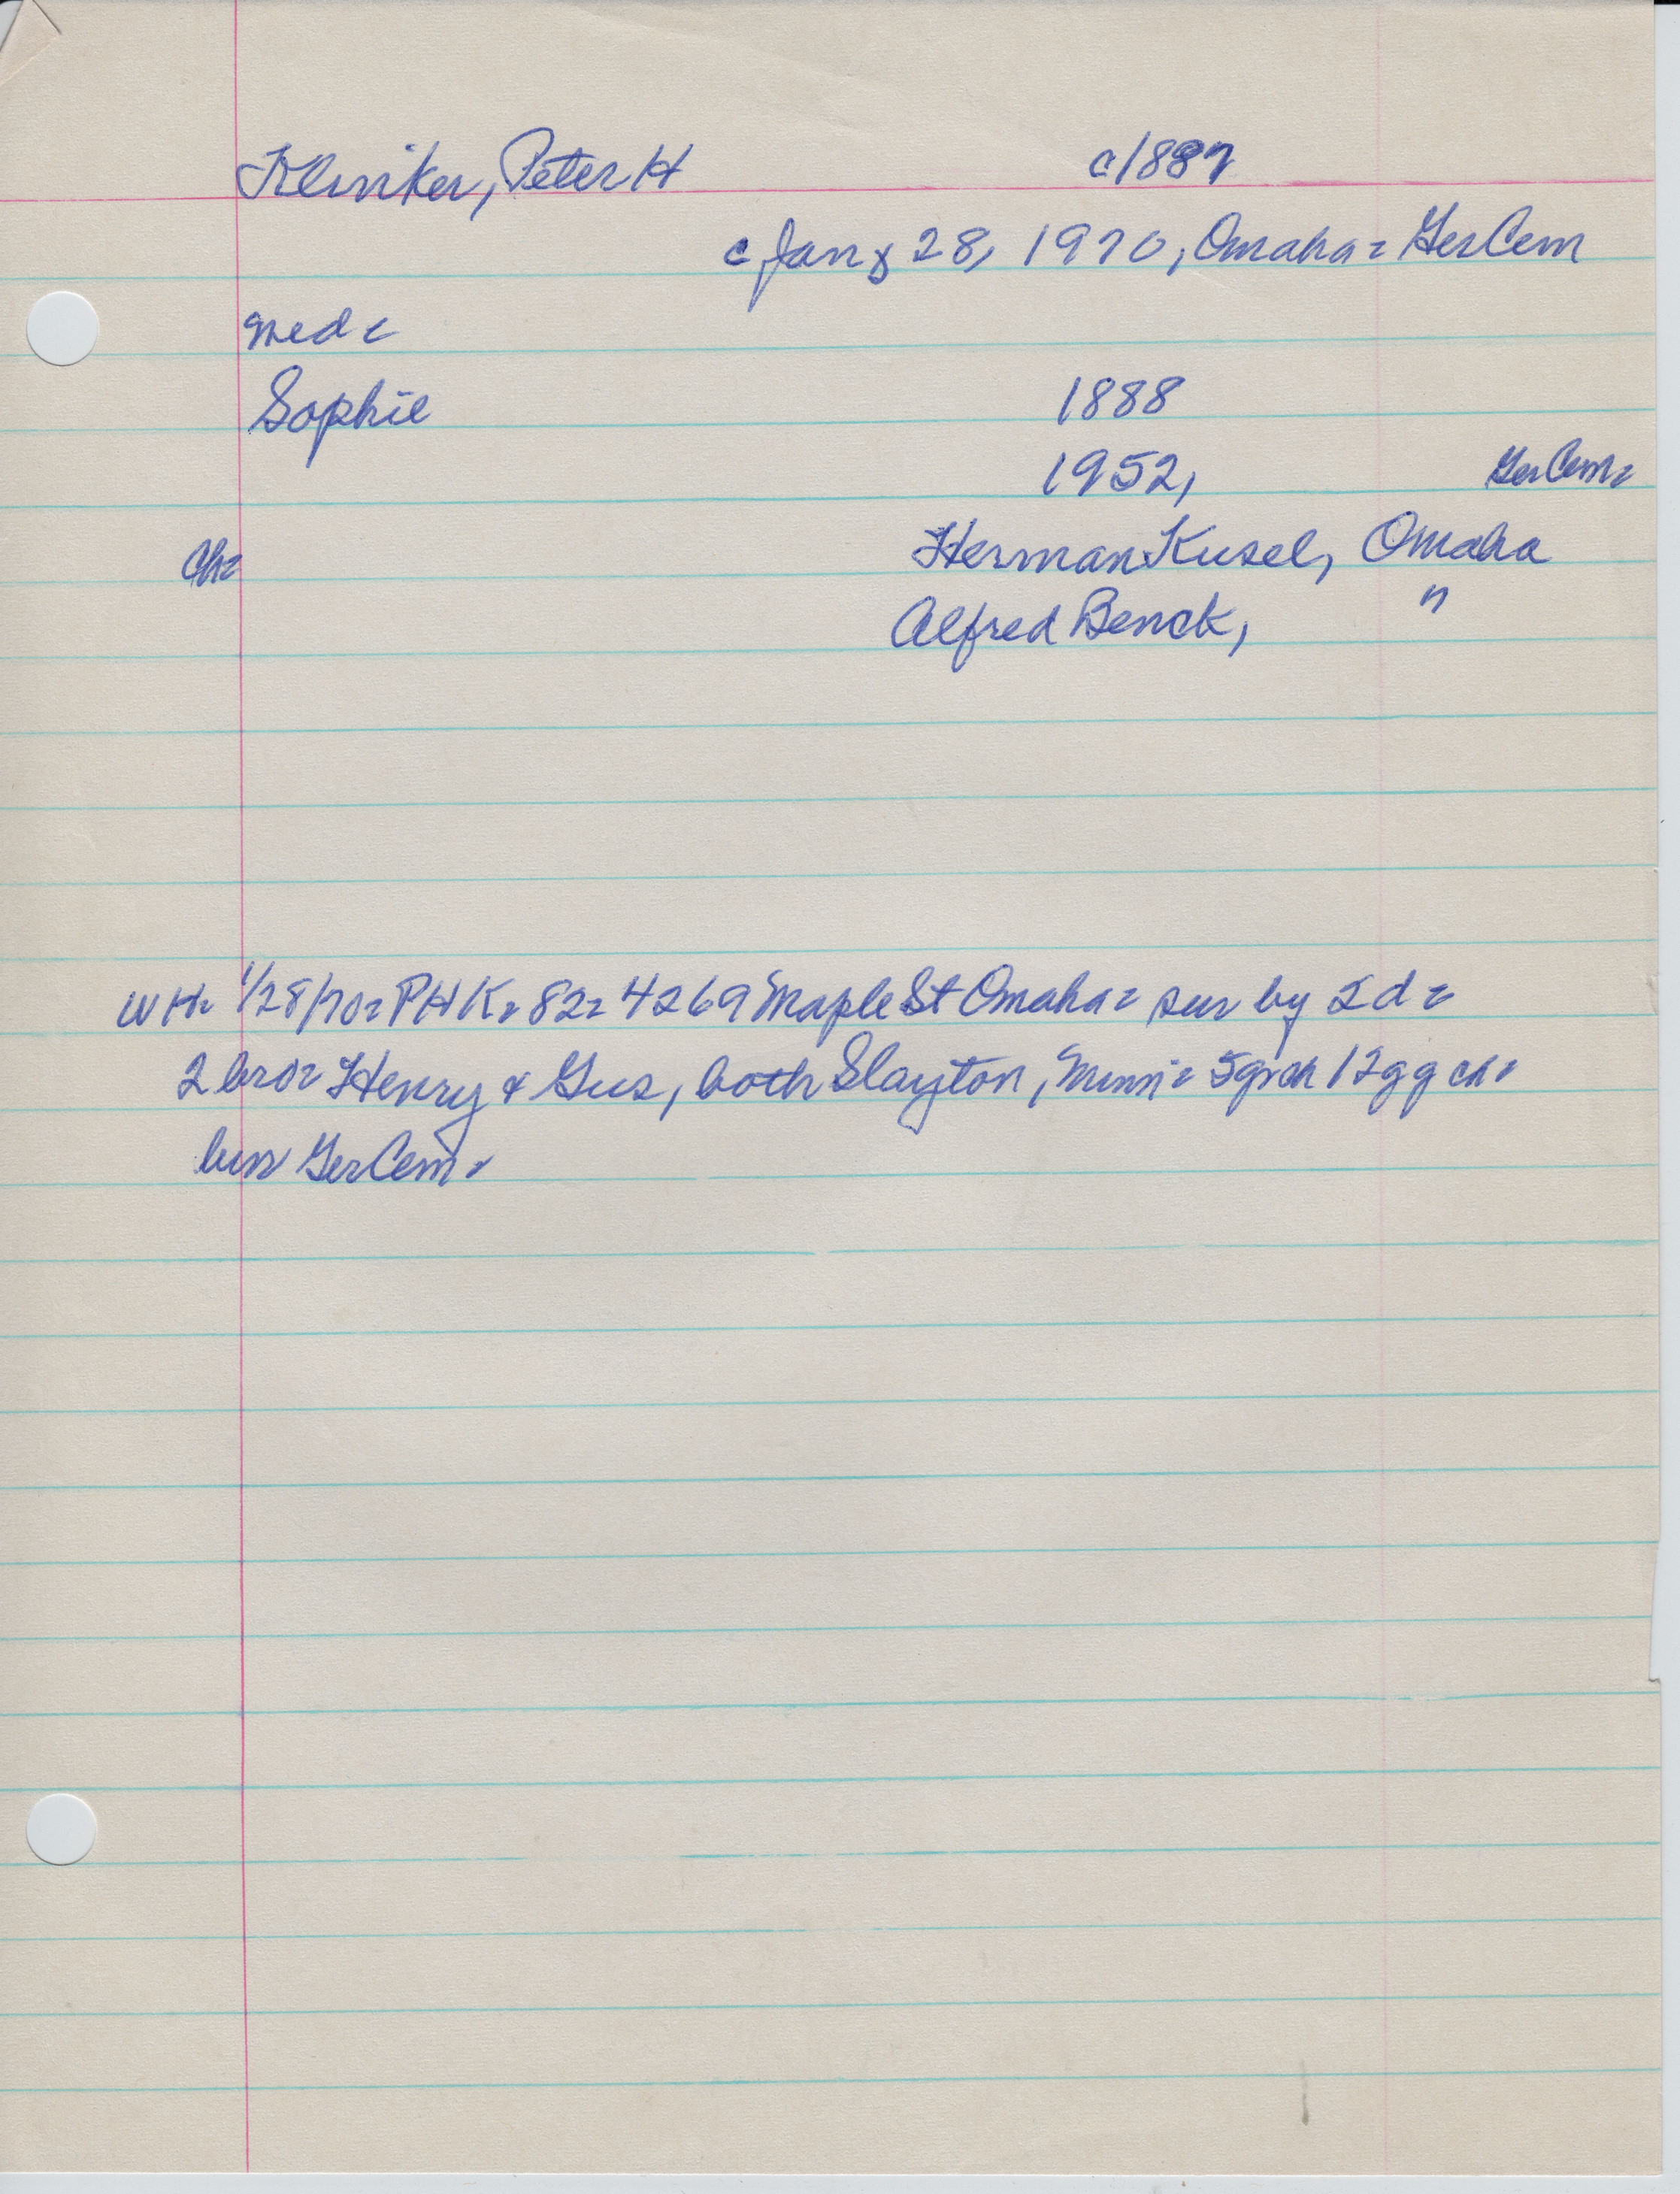 Kliniker, Peter H c1887
c Jany 28, 1970, Omaha= GerCem
med c
Sophie 1888
1952, GerCem=
Ch= Herman Kusel, Omaha
Alfred Benck, "
WH= 1/28/70= PHK= 82= 4269 Maple St Omaha= sur by 2d=
2 bro= Henry & Gus, both Slayton, Minn= 5grch 12ggch=
bur GerCem=